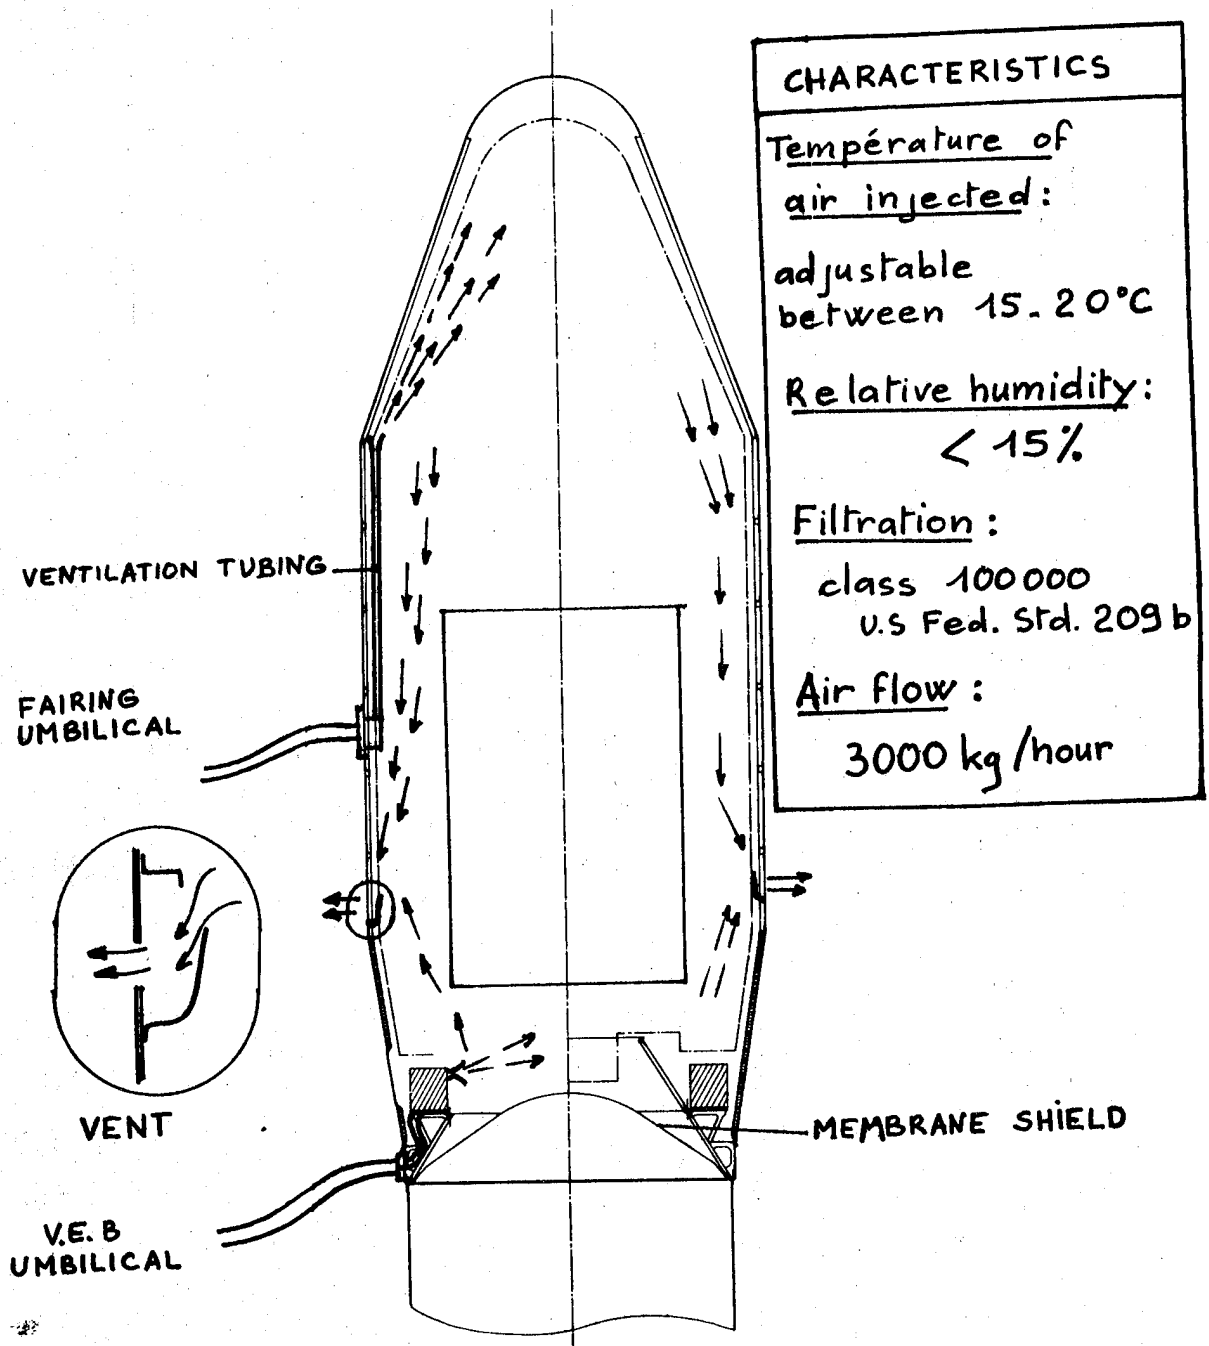 CHARACTERISTICS
Température of
air injected:
adjustable
between 15-20°C
Relative humidity:
< 15%
Filtration:
class 100000
U.S Fed. Std. 209 b
Air flow:
3000 kg/hour
VENTILATION TUBING
FAIRING
UMBILICAL
VENT
MEMBRANE SHIELD
V.E.B
UMBILICAL